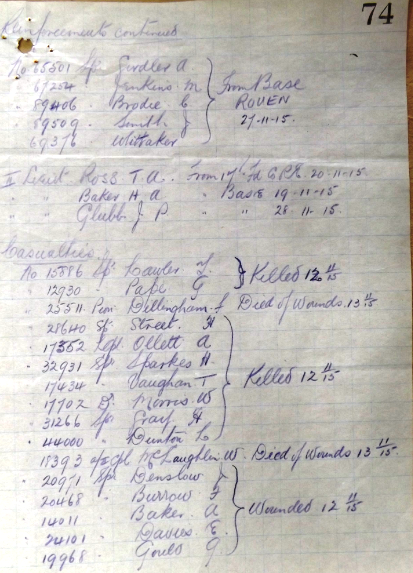 74
Reinforcements continued
No 65501 Spr Girdler A
" 67254 " Jenkins M
" 89406 " Brodie C
" 89509 " Smith J
" 69376 " Whittaker
From Base
ROUEN
27-11-15.
II Lieut Ross T. A. From Fd C° R.E. 20-11-15.
" " Baker H. A " Base 19-11-15
" " Glubb J P " " 28-11-15.
Casualties
No 15886 Spr Lawler J.
" 12930 " Pape G
Killed 12 11/15
" 25511 Pion Dillingham Died of Wounds. 13 11/15
" 21640 Spr Street. H
" 17352 Ollett A
" 32931 Spr Sparkes H.
" 17434 " Vaughan T
" 17702 Morris W
" 31266 Spr Gray H
" 44000 " Dunton L
Killed 12 11/15
" 18393 McLaughlin W. Died of Wounds 13 11/15.
" 20971 Spr Denslow J
" 20468 " Burrow F
" 14011 " Baker A
" 24101 " Davies E.
" 19968 " Gould G
Wounded 12 11/15